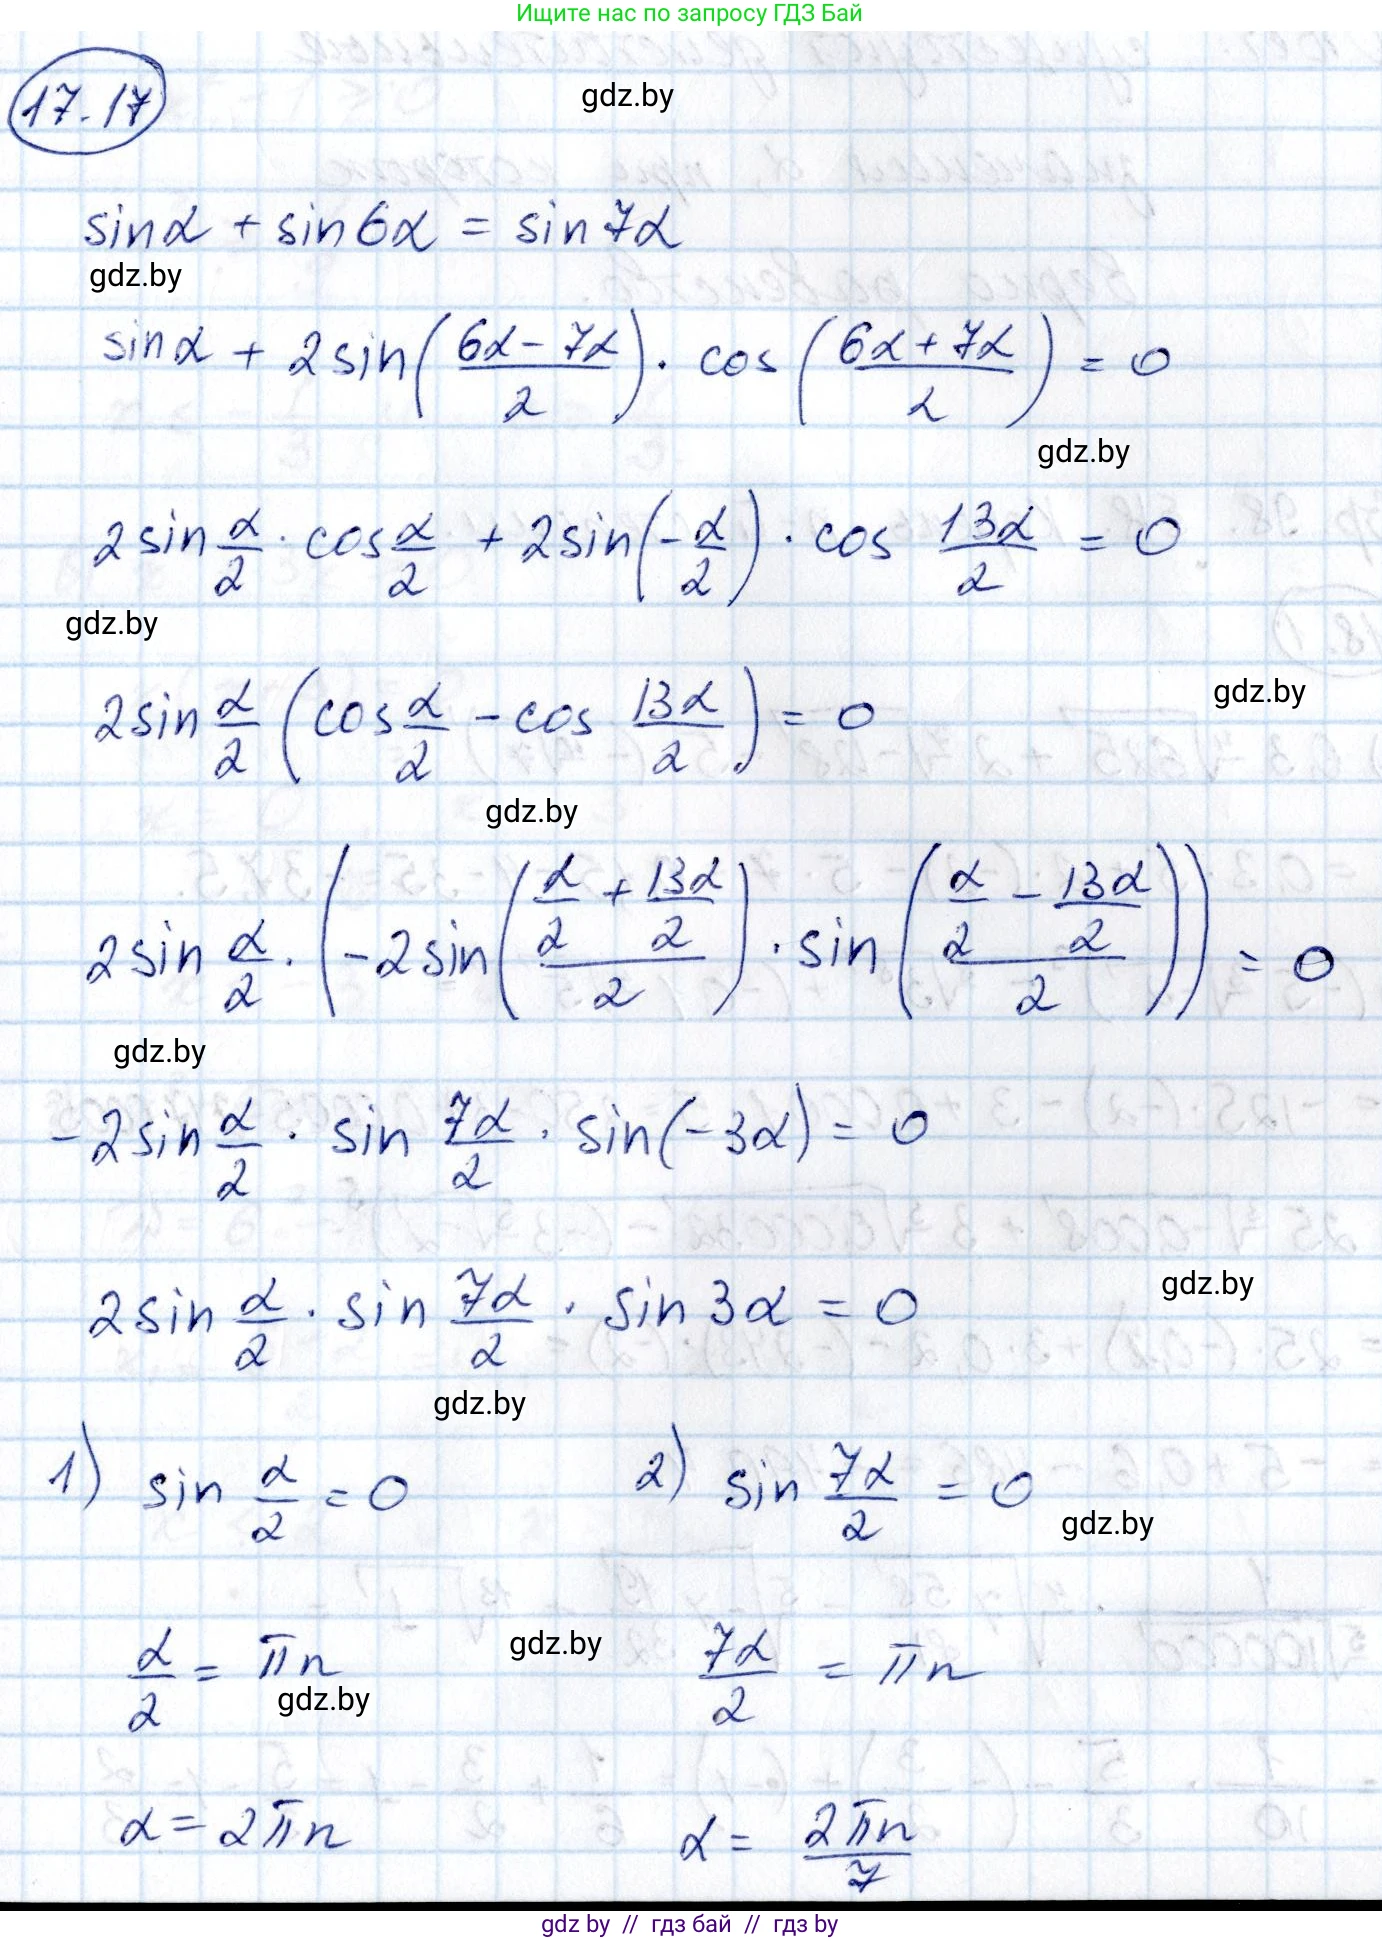 Ищите нас по запросу ГДЗ Бай
17.17
gdz.by
sinα + sin6α = sin7α
gdz.by
sinα + 2sin((6α - 7α)/2) · cos((6α + 7α)/2) = 0
gdz.by
2sin α/2 · cos α/2 + 2sin(-α/2) · cos 13α/2 = 0
gdz.by
2sin α/2 (cos α/2 - cos 13α/2) = 0
gdz.by
gdz.by
2sin α/2 · (-2sin((α/2 + 13α/2)/2) · sin((α/2 - 13α/2)/2)) = 0
gdz.by
-2sin α/2 · sin 7α/2 · sin(-3α) = 0
2sin α/2 · sin 7α/2 · sin 3α = 0
gdz.by
gdz.by
1) sin α/2 = 0 2) sin 7α/2 = 0
gdz.by
α/2 = πn 7α/2 = πn
gdz.by
gdz.by
α = 2πn α = 2πn/7
gdz by // гдз бай // гдз by